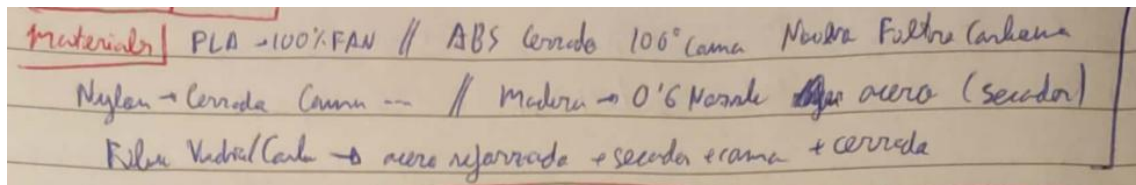 Materials | PLA → 100% FAN // ABS Cerrado 100° Cama Filtro Carbono
Nylon → Cerrada Cama --- // Madera → 0'6 Nozzle acero (secador)
Fibra Vidrio/Carb → acero reforzado + secador + cama + cerrada